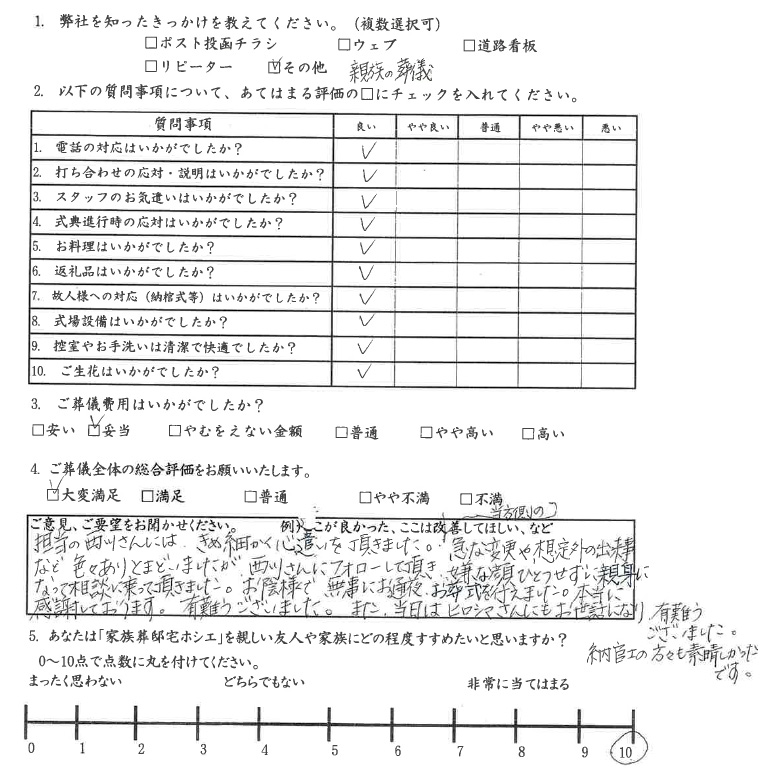 1. 弊社を知ったきっかけを教えてください。（複数選択可）
□ポスト投函チラシ □ウェブ □道路看板
□リピーター ☑その他 親族の葬儀
2. 以下の質問事項について、あてはまる評価の□にチェックを入れてください。
質問事項 良い やや良い 普通 やや悪い 悪い
1. 電話の対応はいかがでしたか？ ✓
2. 打ち合わせの応対・説明はいかがでしたか？ ✓
3. スタッフのお気遣いはいかがでしたか？ ✓
4. 式典進行時の応対はいかがでしたか？ ✓
5. お料理はいかがでしたか？ ✓
6. 返礼品はいかがでしたか？ ✓
7. 故人様への対応（納棺式等）はいかがでしたか？ ✓
8. 式場設備はいかがでしたか？ ✓
9. 控室やお手洗いは清潔で快適でしたか？ ✓
10. ご生花はいかがでしたか？ ✓
3. ご葬儀費用はいかがでしたか？
□安い ☑妥当 □やむをえない金額 □普通 □やや高い □高い
4. ご葬儀全体の総合評価をお願いいたします。
☑大変満足 □満足 □普通 □やや不満 □不満
ご意見、ご要望をお聞かせください。 例）ここが良かった、ここは改善してほしい、など
当方側の
担当の西川さんには、きめ細かく心遣いを頂きました。急な変更や想定外の出来事
など色々ありとまどいましたが西川さんにフォローして頂き 嫌な顔ひとつせずに親身に
なって相談に乗って頂きました。お陰様で無事にお通夜、お葬式を行えました。本当に
感謝しております。有難うございました。また、当日はヒロシマさんにもお世話になり 有難う
ございました。
納官士の方々も素晴しかった
です。
5. あなたは「家族葬邸宅ホシエ」を親しい友人や家族にどの程度すすめたいと思いますか？
0～10点で点数に丸を付けてください。
まったく思わない どちらでもない 非常に当てはまる
0 1 2 3 4 5 6 7 8 9 10